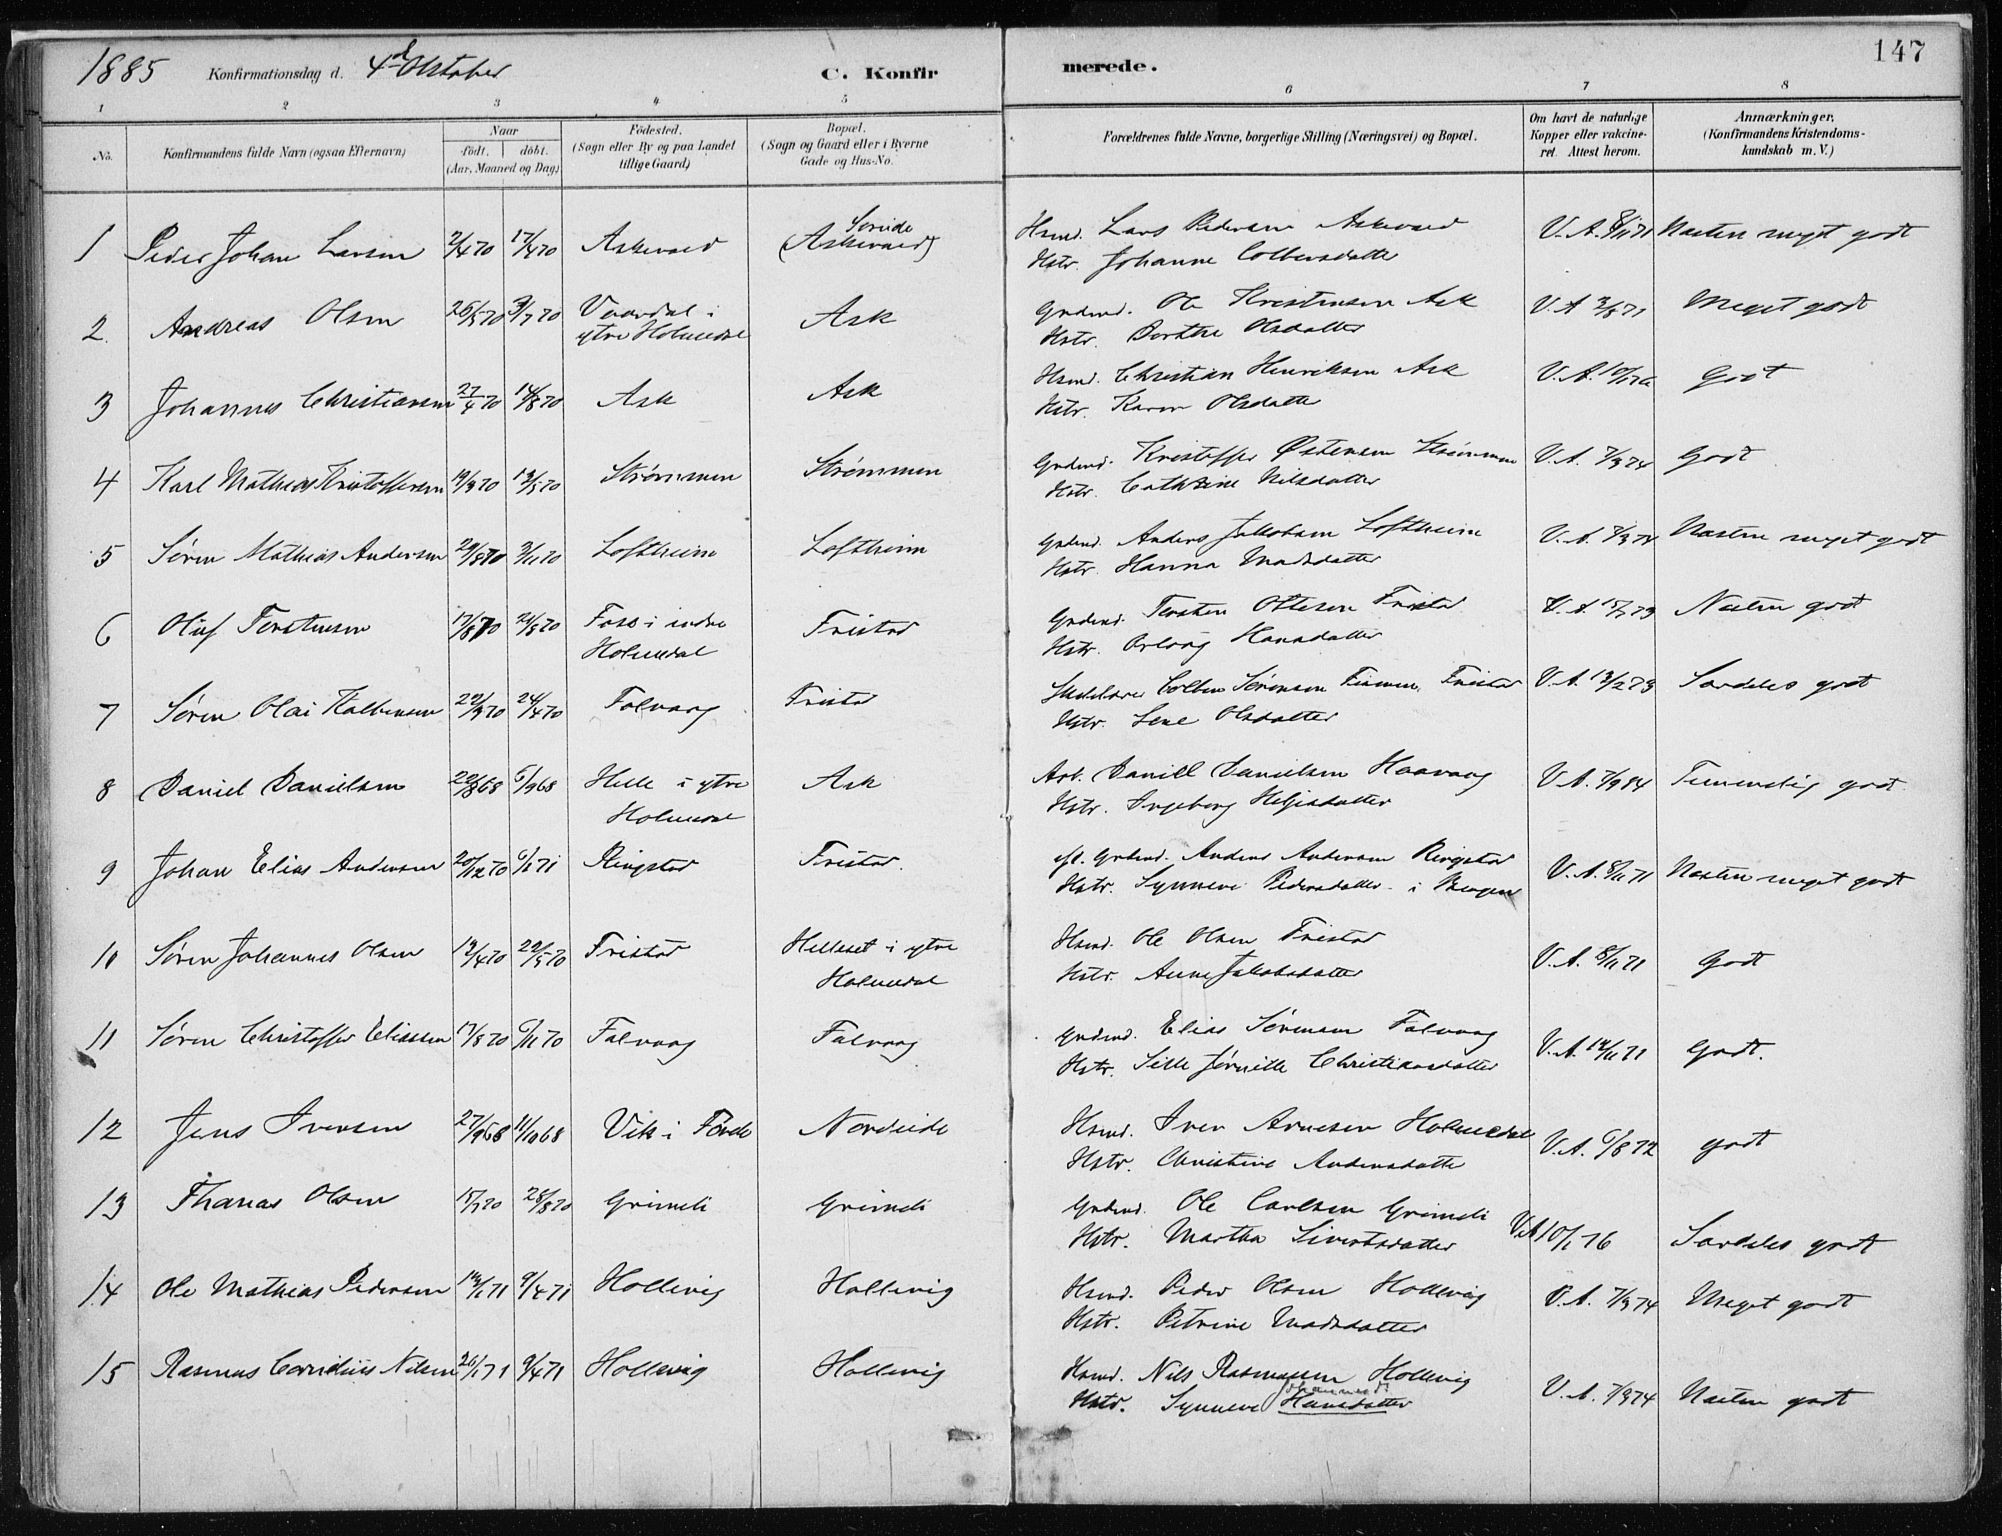 1885 Konfirmationsdag d. 4de Oktober C. Konfirmerede. 147
1 2 3 4 5 6 7 8
No. Konfirmandens fulde Navn (ogsaa Efternavn) Naar födt. döbt. (Aar, Maaned og Dag) Födested. (Sogn eller By og paa Landet tillige Gaard) Bopæl. (Sogn og Gaard eller i Byerne Gade og Hus-No. Forældrenes fulde Navne, borgerlige Stilling (Næringsvei) og Bopæl. Om havt de naturlige Kopper eller vakcineret. Attest herom. Anmærkninger. (Konfirmandens Kristendomskundskab m. V.)
1 Peder Johan Larsen 2/4 70 17/4 70 Askevold (Askevold) Hsmd. Lars Pedersen Askevold V. A. 8/11 71 Næsten meget godt
Hstr. Johanne Colbensdatter
2. Andreas Olsen 26/5 70 3/7 70 Vaardal i ytre Holmedal Ask Grdmd. Ole Kristensen Ask V. A. Meget godt
Hstr. Olsdatter
3 Johannes Christiansen 27/4 70 14/8 70 Ask Ask Hsmd. Christian Henriksen Ask V. A. Godt
Hstr. Karen Olsdatter
4 Karl Mathias Kristoffersen 19/3 70 Strømmen Strømmen Grdmd. Kristoffer Østensen Strømmen V. A. 7/9 74 Godt
Hstr. Cathrine Nilsdatter
5 Søren Mathias Andersen 29/8 70 3/11 70 Loftheim Loftheim Grdmd. Anders Jakobsen Loftheim V. A. 7/9 74 Næsten meget godt
Hstr. Hanna Madsdatter
6 Oluf Torstensen 17/8 70 21/8 70 Foss i indre Holmedal Fristad Grdmd. Torsten Ottesen Fristad V. A. Næsten godt
Hstr. Hansdatter
7 Søren Olai Kolbensen 22/3 70 24/4 70 Folvaag Fristad Colben Sørensen Fristad V. A. 13/2 73 Særdeles godt
Hstr. Lene Olsdatter
8 Daniel Danielsen 22/8 68 6/9 68 Helle i ytre Holmedal Ask Arb. Daniel Danielsen Haavaag V. A. 7/9 84 Temmelig godt
Hstr. Ingeborg Heljesdatter
9 Johan Elias Andersen 20/12 70 6/1 71 Ringstad Fristad. Grdmd. Anders Andersen Ringstad V. A. 8/11 71 Næsten meget godt
Hstr. Synneve Pedersdatter i Bergen
10 Søren Johannes Olsen 13/4 70 22/5 70 Fristad Helleset i ytre Holmedal Hsmd. Ole Olsen Fristad V. A. 8/11 71 Godt
Hstr. Anne Jakobsdatter
11 Søren Christoffer Eliassen 17/8 70 6/11 70 Folvaag Folvaag Grdmd. Elias Sørensen Folvaag V. A. 14/11 71 Godt.
Hstr. Christiansdatter
12 Jens Iversen 27/9 68 11/10 68 Vik i Førde Nordeide Hsmd. Iver Arnesen Holmedal V. A. 6/8 72 godt
Hstr. Christine Andersdatter
13 Thanas Olsen 28/8 70 Grimeli Grimeli Grdmd. Ole Carlsen Grimeli V. A. 10/1 76 Særdeles godt
Hstr. Martha Sivertsdatter
14 Ole Mathias Pedersen 9/4 71 Hollevig Hollevig Hsmd. Peder Olsen Hollevig V. A. 7/9 74 Meget godt
Hstr. Petrine Madsdatter
15 Rasmus Cornelius Nilsen 26/1 71 9/4 71 Hollevig Hollevig Hsmd. Nils Rasmussen Hollevig V. A. 7/9 74 Næsten godt
Hstr. Synneve Hansdatter